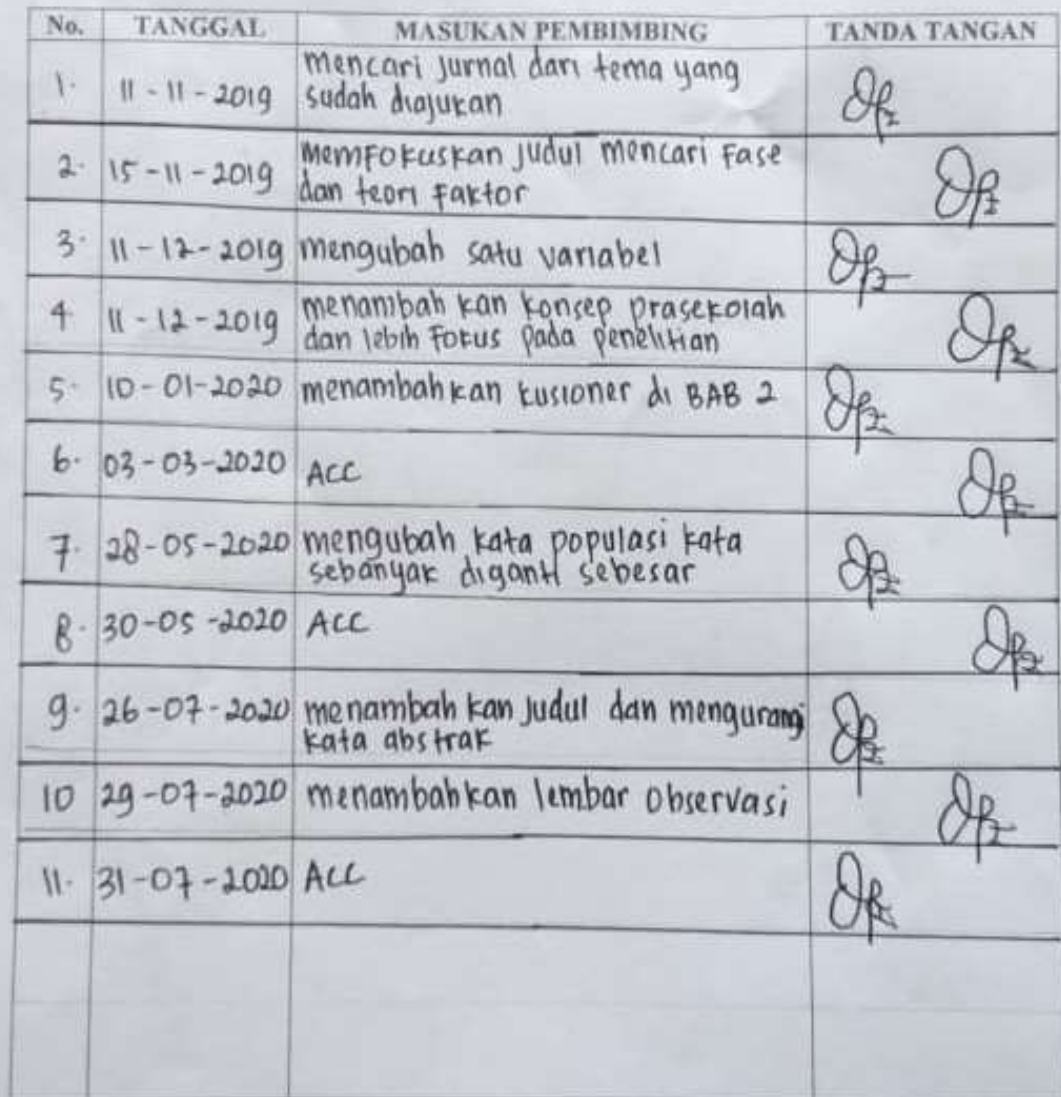 No. TANGGAL MASUKAN PEMBIMBING TANDA TANGAN
1. 11-11-2019 mencari jurnal dari tema yang
sudah diajukan
2. 15-11-2019 memfokuskan judul mencari fase
dan teori faktor
3. 11-12-2019 mengubah satu variabel
4 11-12-2019 menambah kan konsep prasekolah
dan lebih fokus pada penelitian
5. 10-01-2020 menambahkan kusioner di BAB 2
6. 03-03-2020 ACC
7. 28-05-2020 mengubah kata populasi kata
sebanyak diganti sebesar
8. 30-05-2020 ACC
9. 26-07-2020 menambah kan judul dan mengurangi
kata abstrak
10 29-07-2020 menambahkan lembar observasi
11. 31-07-2020 ACC